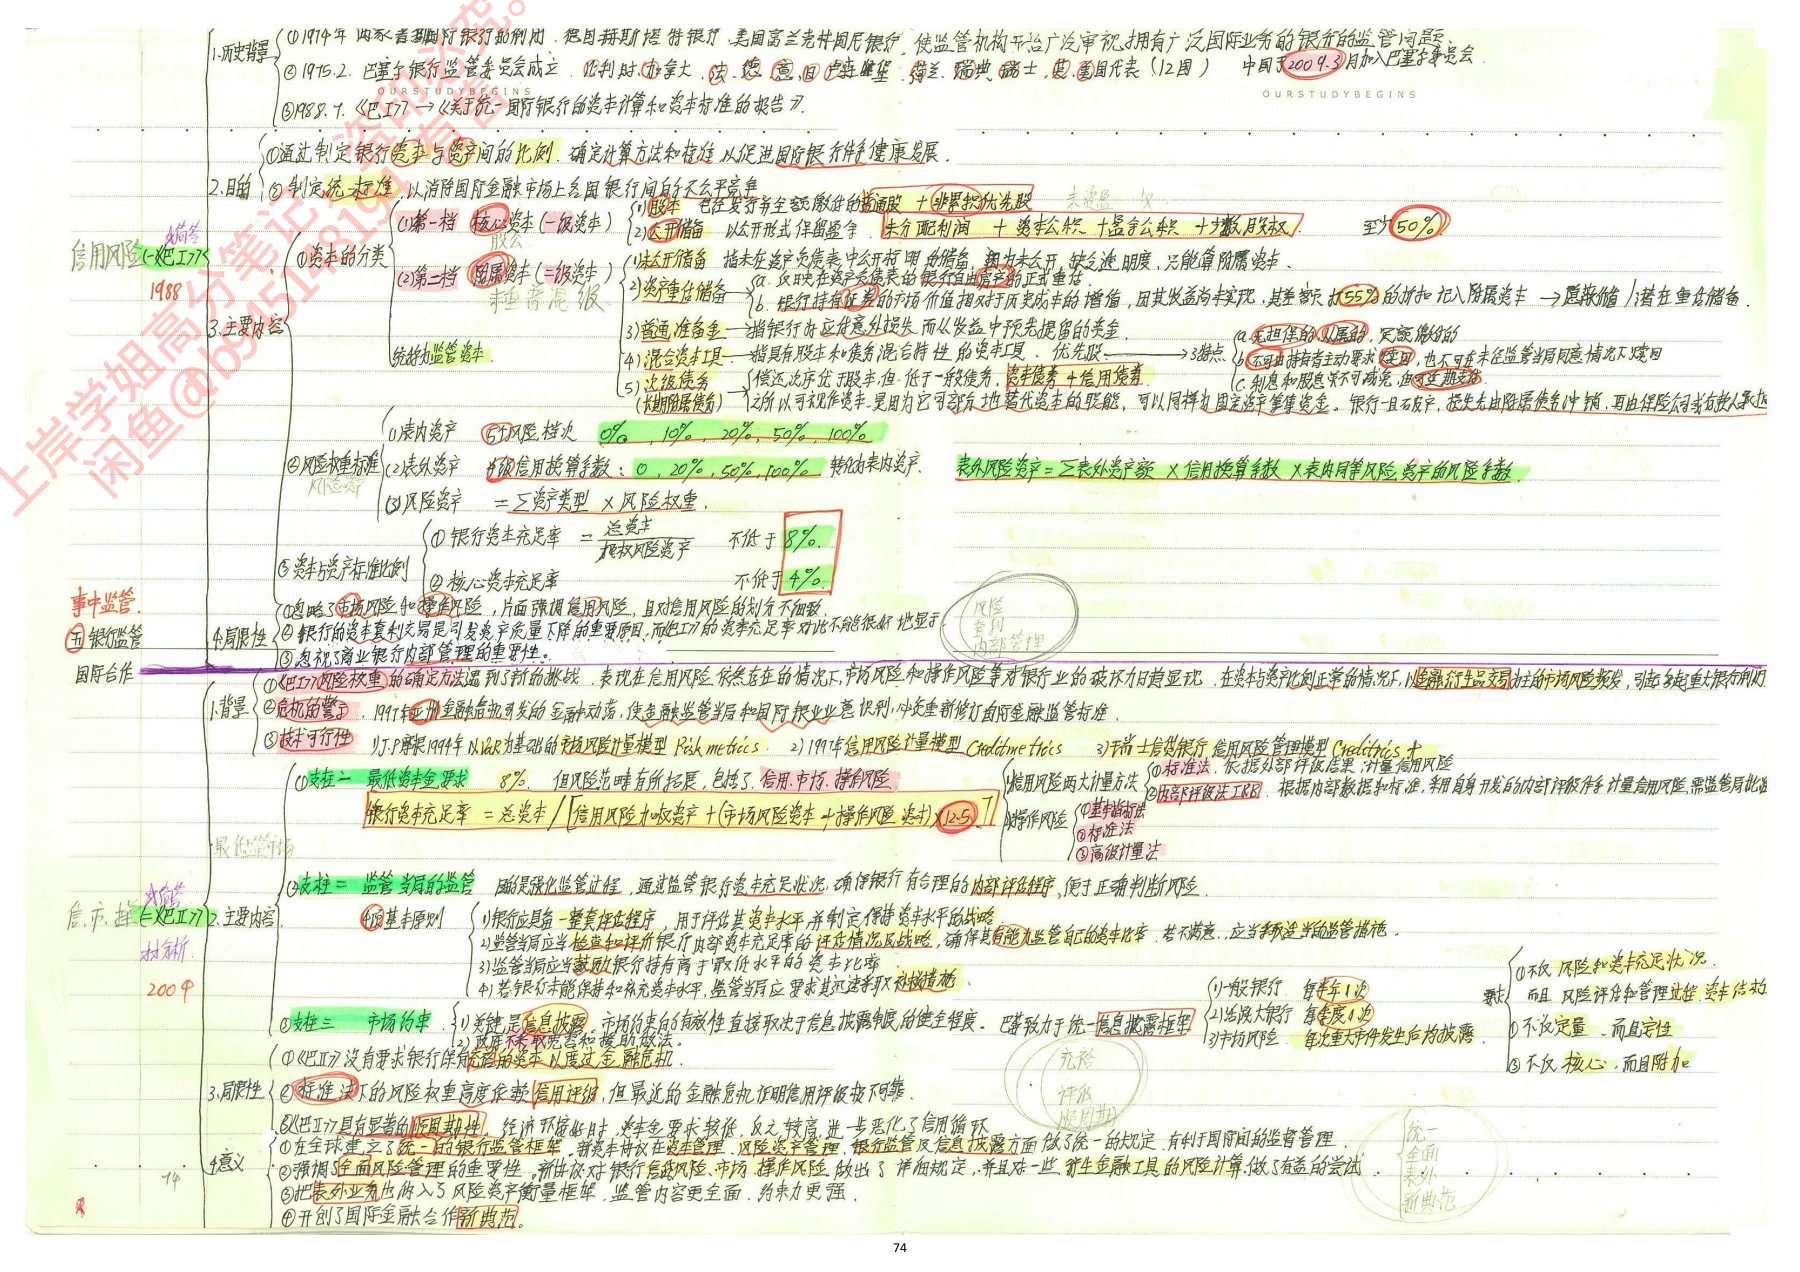 1.历史背景
①1974年 两家著名国际银行的倒闭. 德国赫斯塔特银行. 美国富兰克林国民银行. 使监管机构开始广泛审视拥有广泛国际业务的银行的监管问题.
②1975.2. 巴塞尔银行监管委员会成立. 比利时、加拿大、法、德、意、日、卢森堡、荷兰、瑞典、瑞士、英、美国代表(12国) 中国于2009.3月加入巴塞尔委员会
OURSTUDYBEGINS
OURSTUDYBEGINS
③1988.7.《巴Ⅰ》→《关于统一国际银行的资本计算和资本标准的报告》.
2.目的
①通过制定银行资本与资产间的比例. 确定计算方法和标准 以促进国际银行体系健康发展.
②制定统一标准, 以消除国际金融市场上各国银行间的不公平竞争
信用风险 (一《巴Ⅰ》)
1988
3.主要内容
①资本的分类
(1)第一档 核心资本(一级资本)
股公
1)股本 包括发行并全额缴付的普通股 + 非累积优先股
2)公开储备 以公开形式保留盈余. 未分配利润 + 资本公积 + 盈余公积 + 少数股权 至少50%
(2)第二档 附属资本(二级资本)
未重普混级
1)未公开储备 指未在资产负债表中公开标明的储备, 因为未公开, 缺乏透明度, 只能算附属资本.
2)资产重估储备
a. 反映在资产负债表的银行自由资产的正式重估
b. 银行持有证券的市场价值相对于历史成本的增值, 因其收益尚未实现, 其重需打55%的折扣记入附属资本 → 隐蔽价值/潜在重估储备.
统称为监管资本.
3)普通准备金 → 指银行为应付意外损失而从收益中预先提留的资金.
4)混合资本工具 → 指具有股本和债务混合特性的资本工具. 优先股 → 3特点
a.无担保的、从属的、足额缴付的
b.不可由持有者主动要求赎回, 也不可在未经监管当局同意情况下赎回
c.利息和股息虽不可减免, 但可延期支付
5)次级债务
(长期附属债务)
偿还次序优于股本, 但低于一般债务. 资本债券+信用债券.
之所以可视作资本, 是因为它可部分地替代资本的职能, 可以同样为固定资产筹集资金. 银行一旦破产, 损失先由附属债务冲销, 再由保险公司或存款人承担
②风险权重标准
风险资产
(1)表内资产 5个风险档次 0%, 10%, 20%, 50%, 100%
(2)表外资产 4级信用换算系数: 0, 20%, 50%, 100% 转化为表内资产. 表外风险资产=Σ表外资产额×信用换算系数×表内同等风险资产的风险系数.
(3)风险资产 = Σ资产类型 × 风险权重.
③资本与资产标准比例
①银行资本充足率 = 总资本/加权风险资产 不低于 8%.
②核心资本充足率 不低于 4%.
事中监管.
五 银行监管
国际合作
4.局限性
①忽略了市场风险和操作风险, 片面强调信用风险, 且对信用风险的划分不细致.
②银行的资本套利交易是引发资产质量下降的重要原因, 而《巴Ⅰ》的资本充足率对此不能很好地显示.
③忽视了商业银行内部管理的重要性.
风险
套利
内部管理
1.背景
①《巴Ⅰ》风险权重的确定方法遇到了新的挑战. 表现在信用风险依然存在的情况下, 市场风险和操作风险等对银行业的破坏力日趋显现. 在资本与资产比例正常的情况下, 以金融衍生品交易为主的市场风险频发, 引起多起重大银行倒闭
②危机的警示. 1997年亚洲金融危机引发的金融动荡, 使金融监管当局和国际银行业意识到, 必须重新修订国际金融监管标准.
③技术可行性 1)J.P摩根1994年以VaR为基础的市场风险计量模型 Riskmetrics. 2)1997年信用风险计量模型 Creditmetrics 3)瑞士信贷银行信用风险管理模型 Creditrisk+
信. 市. 操 (二《巴Ⅱ》)
2004
2.主要内容
最低监管市场
①支柱一 最低资本金要求 8% 但风险范畴有所拓展, 包括了信用.市场.操作风险
银行资本充足率 = 总资本/[信用风险加权资产+(市场风险资本+操作风险资本)×12.5]
1)信用风险两大计量方法
①标准法. 依据外部评级结果, 计量信用风险
②内部评级法IRB. 根据内部数据和标准, 采用自身开发的内部评级体系计量信用风险, 需监管局批准
2)操作风险
①基本指标法
②标准法
③高级计量法
②支柱二 监管当局的监管 目的是强化监管过程, 通过监管银行资本充足状况, 确保银行有合理的内部评估程序, 便于正确判断风险.
4项基本原则
1)银行应具备一整套评估程序, 用于评估其资本水平并制定保持资本水平的战略
2)监管当局应当检查和评价银行内部资本充足率的评估情况及战略, 确保其有能力监管自己的资本比率. 若不满意, 应当采取适当的监管措施.
3)监管当局应当鼓励银行持有高于最低水平的资本比率
4)若银行未能保持和补充资本水平, 监管当局应要求其迅速采取补救措施.
③支柱三 市场约束
1)关键是信息披露. 市场约束的有效性直接取决于信息披露制度的健全程度. 巴塞致力于统一信息披露框架
2)政府不采取宽容和援助做法.
1)一般银行 每半年1次
2)活跃大银行 每季度1次
3)市场风险. 每次重大事件发生后均披露
要求
①不仅 风险和资本充足状况.
而且 风险评估和管理过程. 资本结构
②不仅定量. 而且定性
③不仅核心, 而且附加
3.局限性
①《巴Ⅱ》没有要求银行保有充裕的资本以度过金融危机.
②标准法下的风险权重高度依赖信用评级, 但最近的金融危机证明信用评级极不可靠.
③《巴Ⅱ》具有显著的顺周期性. 经济环境好时, 资本金要求较低, 反之较高, 进一步恶化了信用循环
充裕
评级
顺周期
4.意义
①在全球建立了统一的银行监管框架. 新资本协议在资本管理. 风险资产管理. 银行监管及信息披露方面做了统一的规定. 有利于国际间的监督管理.
②强调了全面风险管理的重要性. 新协议对银行信贷风险. 市场. 操作风险做出了详细规定, 并且对一些衍生金融工具的风险计算做了有益的尝试.
③把表外业务也纳入了风险资产衡量框架. 监管内容更全面. 约束力更强.
④开创了国际金融合作新典范.
统一
全面
表外
新典范
74
74
上岸学姐高分笔记, 盗印必究。